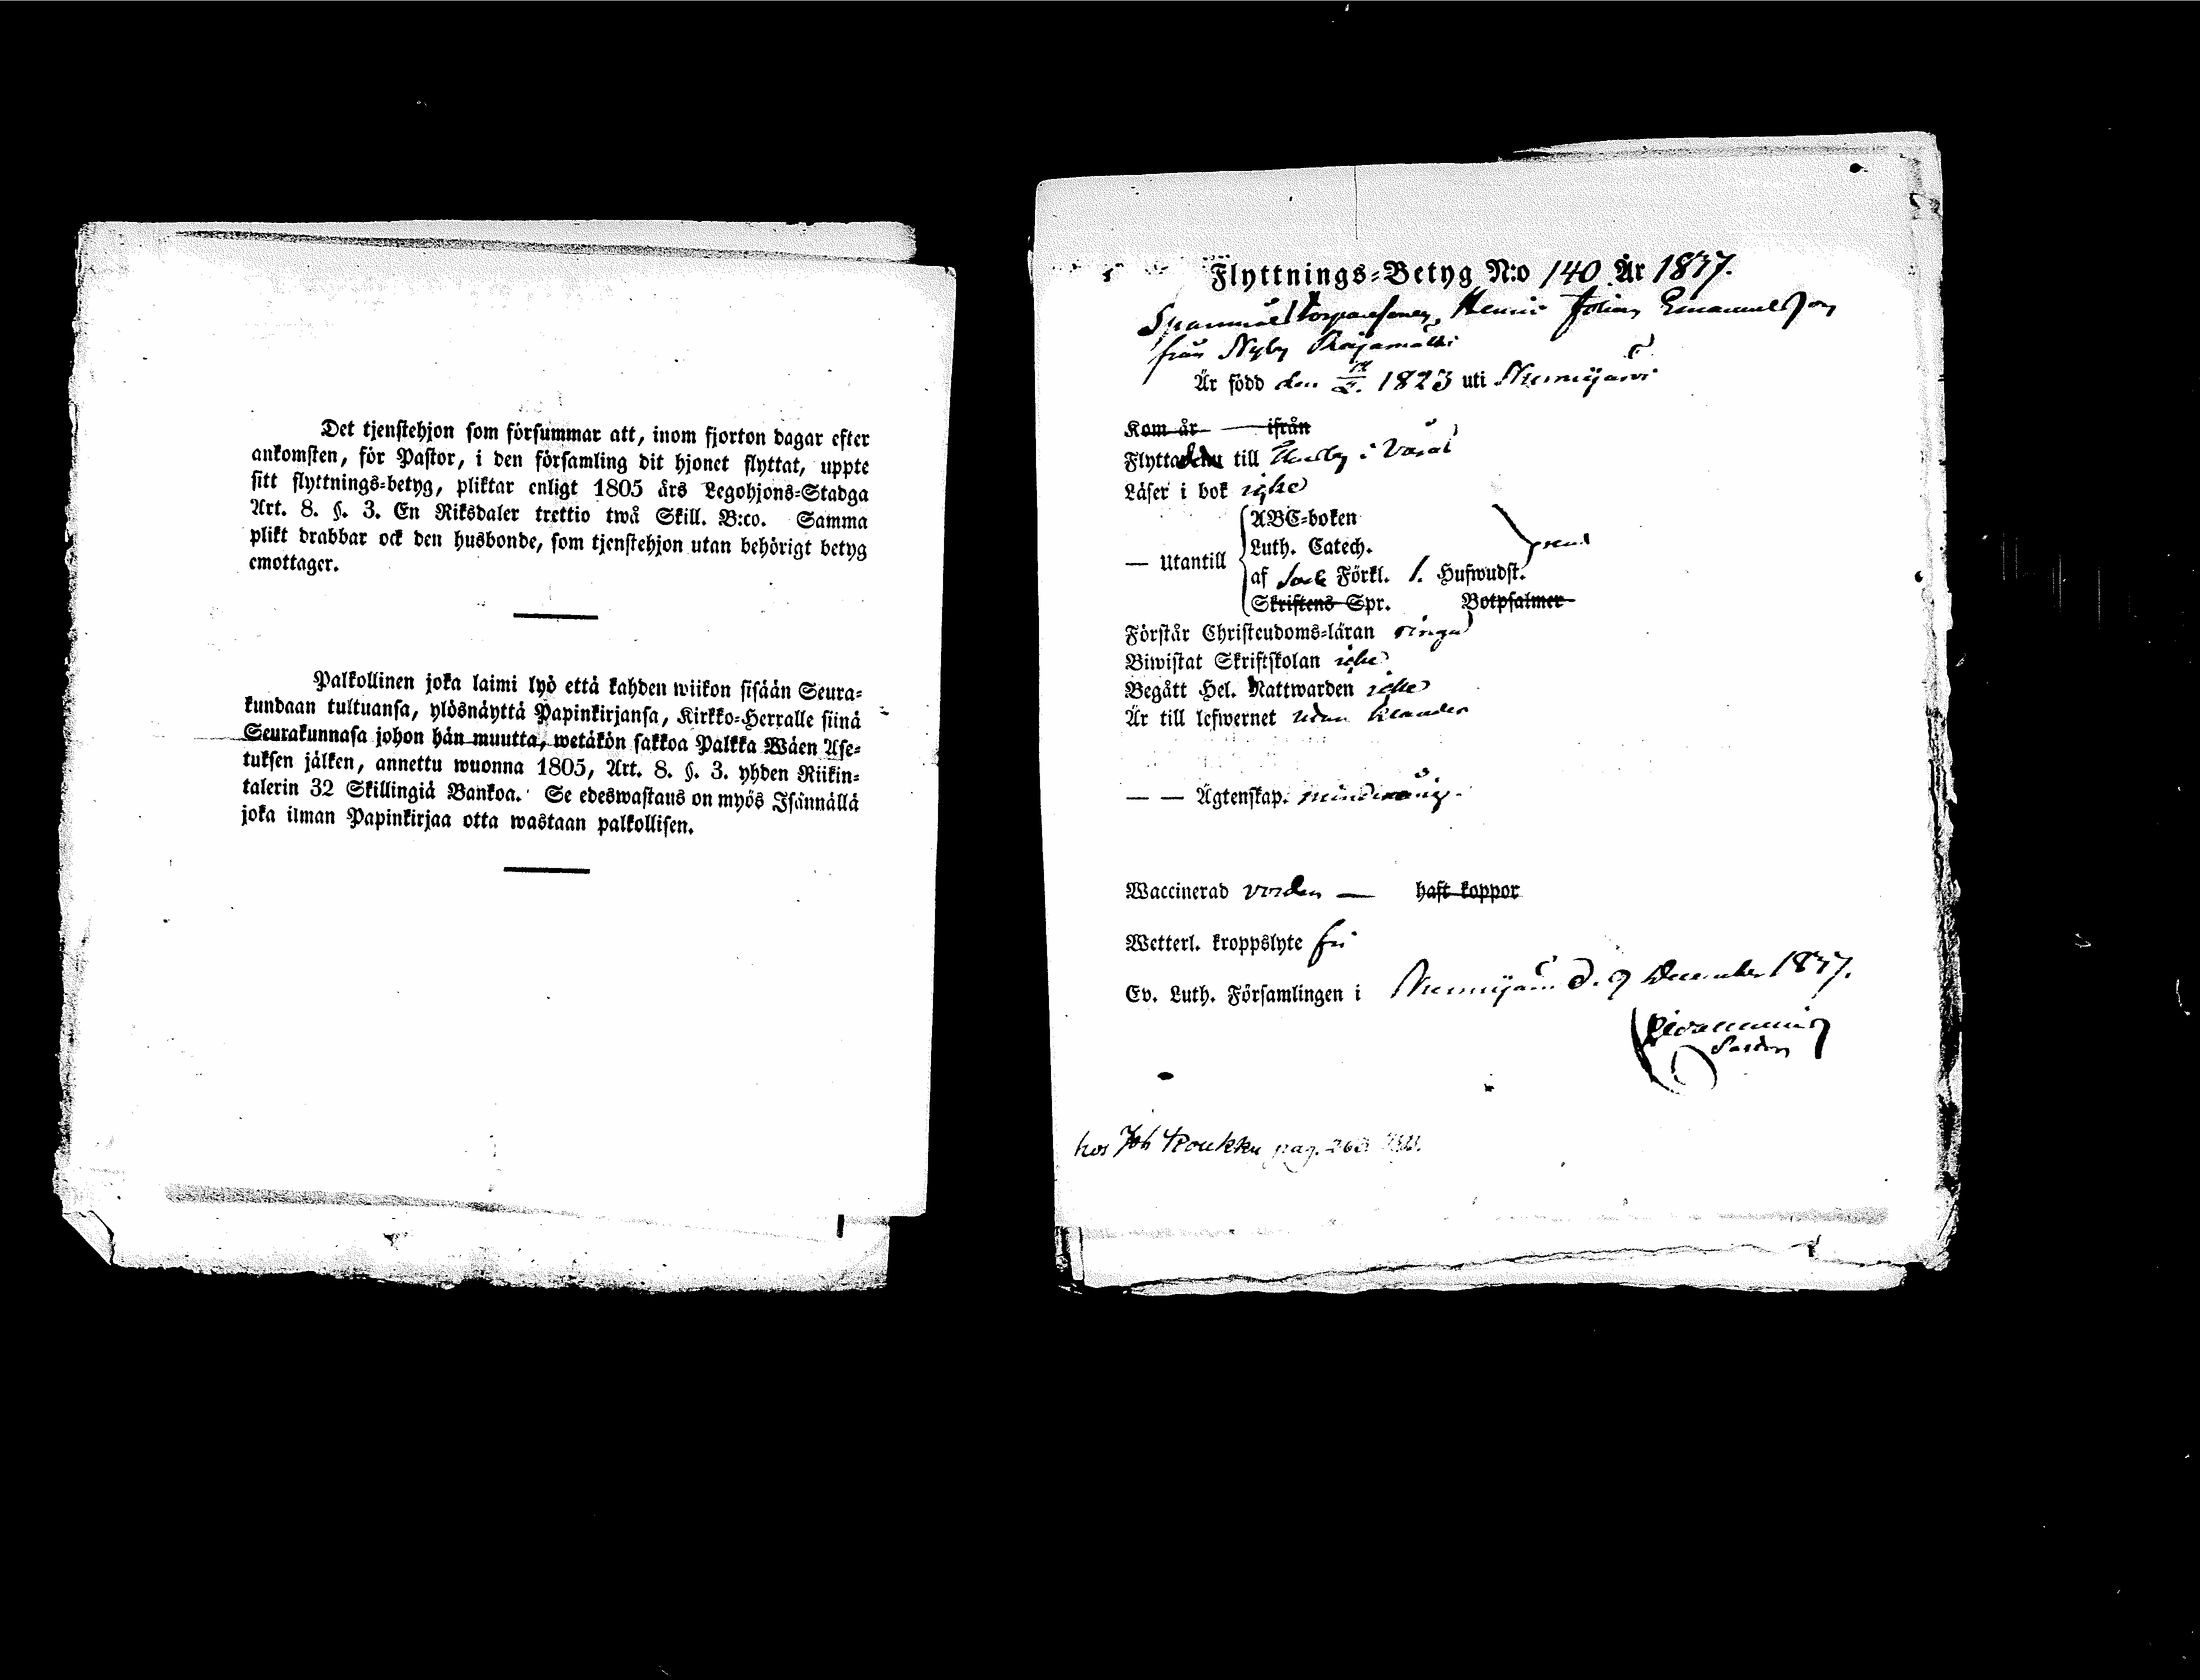 Det tjenstehjon som försummar att, inom fjorton dagar efter
ankomsten, för Pastor, i den församling dit hjonet flyttat, uppte
sitt flyttnings-betyg, pliktar enligt 1805 års Legohjons-Stadga
Art. 8. §. 3. En Riksdaler trettio twå Skill. B:co. Samma
plikt drabbar ock den husbonde, som tjenstehjon utan behörigt betyg
emottager.
Palkollinen joka laimi lyö että kahden wiikon sisään Seura-
kundaan tultuansa, ylösnäyttä Papinkirjansa, Kirkko-Herralle siinä
Seurakunnasa johon hän muutta, wetäkön sakkoa Palkka Wäen Ase-
tuksen jälken, annettu wuonna 1805, Art. 8. §. 3. yhden Riikin-
talerin 32 Skillingiä Bankoa. Se edeswastaus on myös Isännällä
joka ilman Papinkirjaa otta wastaan palkollisen.
Flyttnings-Betyg N:o 140 År 1837.
Henric Johan Emanuelsson
från Nyby
Är född den 1823 uti Nurmijärvi
Kom år ifrån
Flyttar till i
Läser i bok icke
— Utantill
ABC-boken
Luth. Catech.
af Förkl. 1. Hufwudst.
Skriftens Spr. Botpsalmer
Förstår Christendoms-läran ringa
Biwistat Skriftskolan icke
Begått Hel. Nattwarden icke
Är till lefwernet utan klander
— — Ägtenskap. minderårig.
Waccinerad vorden — haft koppor
Wetterl. kroppslyte fri
Ev. Luth. Församlingen i Nurmijärvi d. 9 December 1837.
Pastor
hos Joh Roukku pag. 263